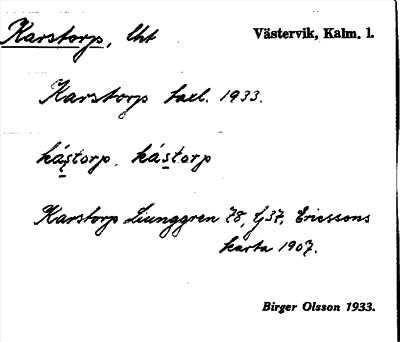 Karstorp, lht Västervik, Kalm. l.
Karstorp taxl. 1933.
kás̱torp, kás̱torp
Karstorp Ljunggren 78, Gj37, Ericssons
karta 1907.
Birger Olsson 1933.